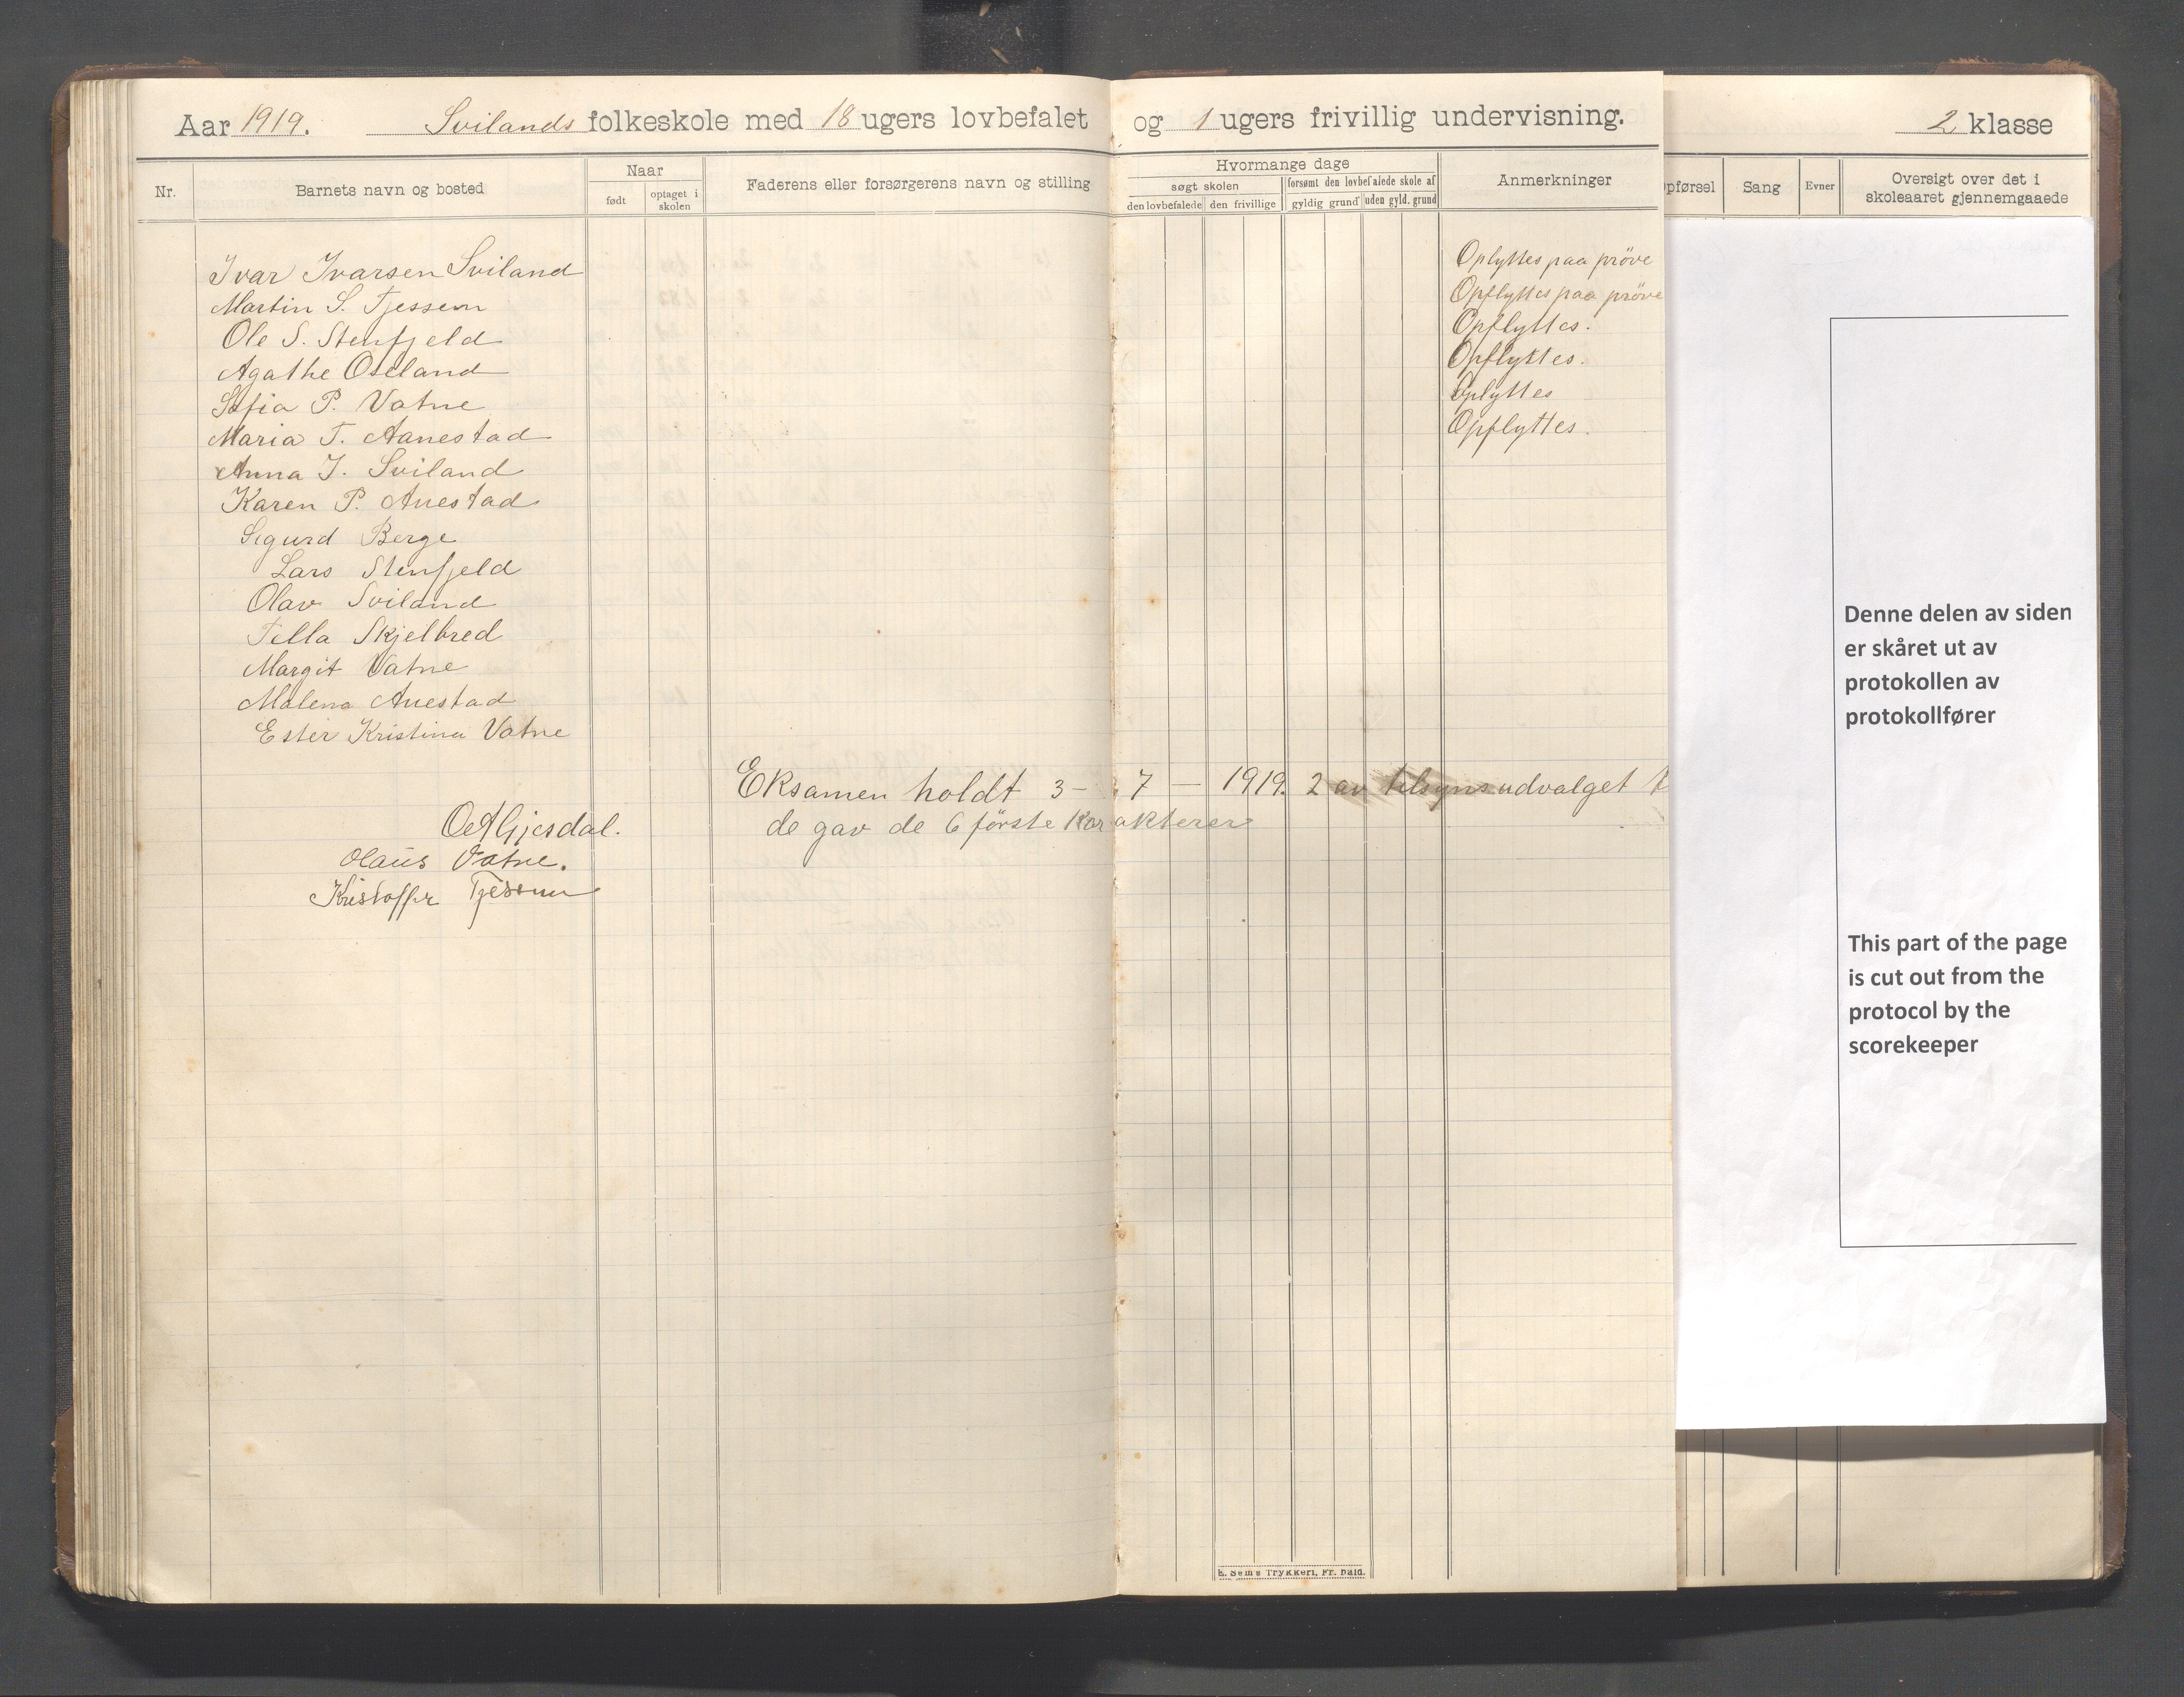 Aar 1919. Svilands folkeskole med 18 ugers lovbefalet og 1 ugers frivillig undervisning. 2 klasse
Nr. Barnets navn og bosted Naar født optaget i skolen Faderens eller forsørgerens navn og stilling Hvormange dage søgt skolen den lovbefalede den frivillige forsømt den lovbefalede skole af gyldig grund uden gyld. grund Anmerkninger pførsel Sang Evner Oversigt over det i skoleaaret gjennemgaaede
Ivar Ivarsen Sviland Oplyttes paa pröve
Martin S. Tjessem Opflyttes paa pröve
Ole S. Stenfjeld Opflyttes.
Agathe Oseland Opflyttes.
Sofia P. Vatne Oplyttes
Maria T. Aanestad Opflyttes.
Anna I. Sviland
Karen P. Auestad
Sigurd Berge
Lars Stenfjeld
Olav Sviland
Tella Skjelbred
Margit Vatne
Malena Auestad
Ester Kristina Vatne
Eksamen holdt 3 - 7 - 1919. 2 av tilsynsudvalget
de gav de 6 förste Karakterer
O A Gjesdal.
Olaus Vatne.
Kristoffer Tjessem
E. Sem's Trykkeri, Fr. hald.
Denne delen av siden
er skåret ut av
protokollen av
protokollfører
This part of the page
is cut out from the
protocol by the
scorekeeper